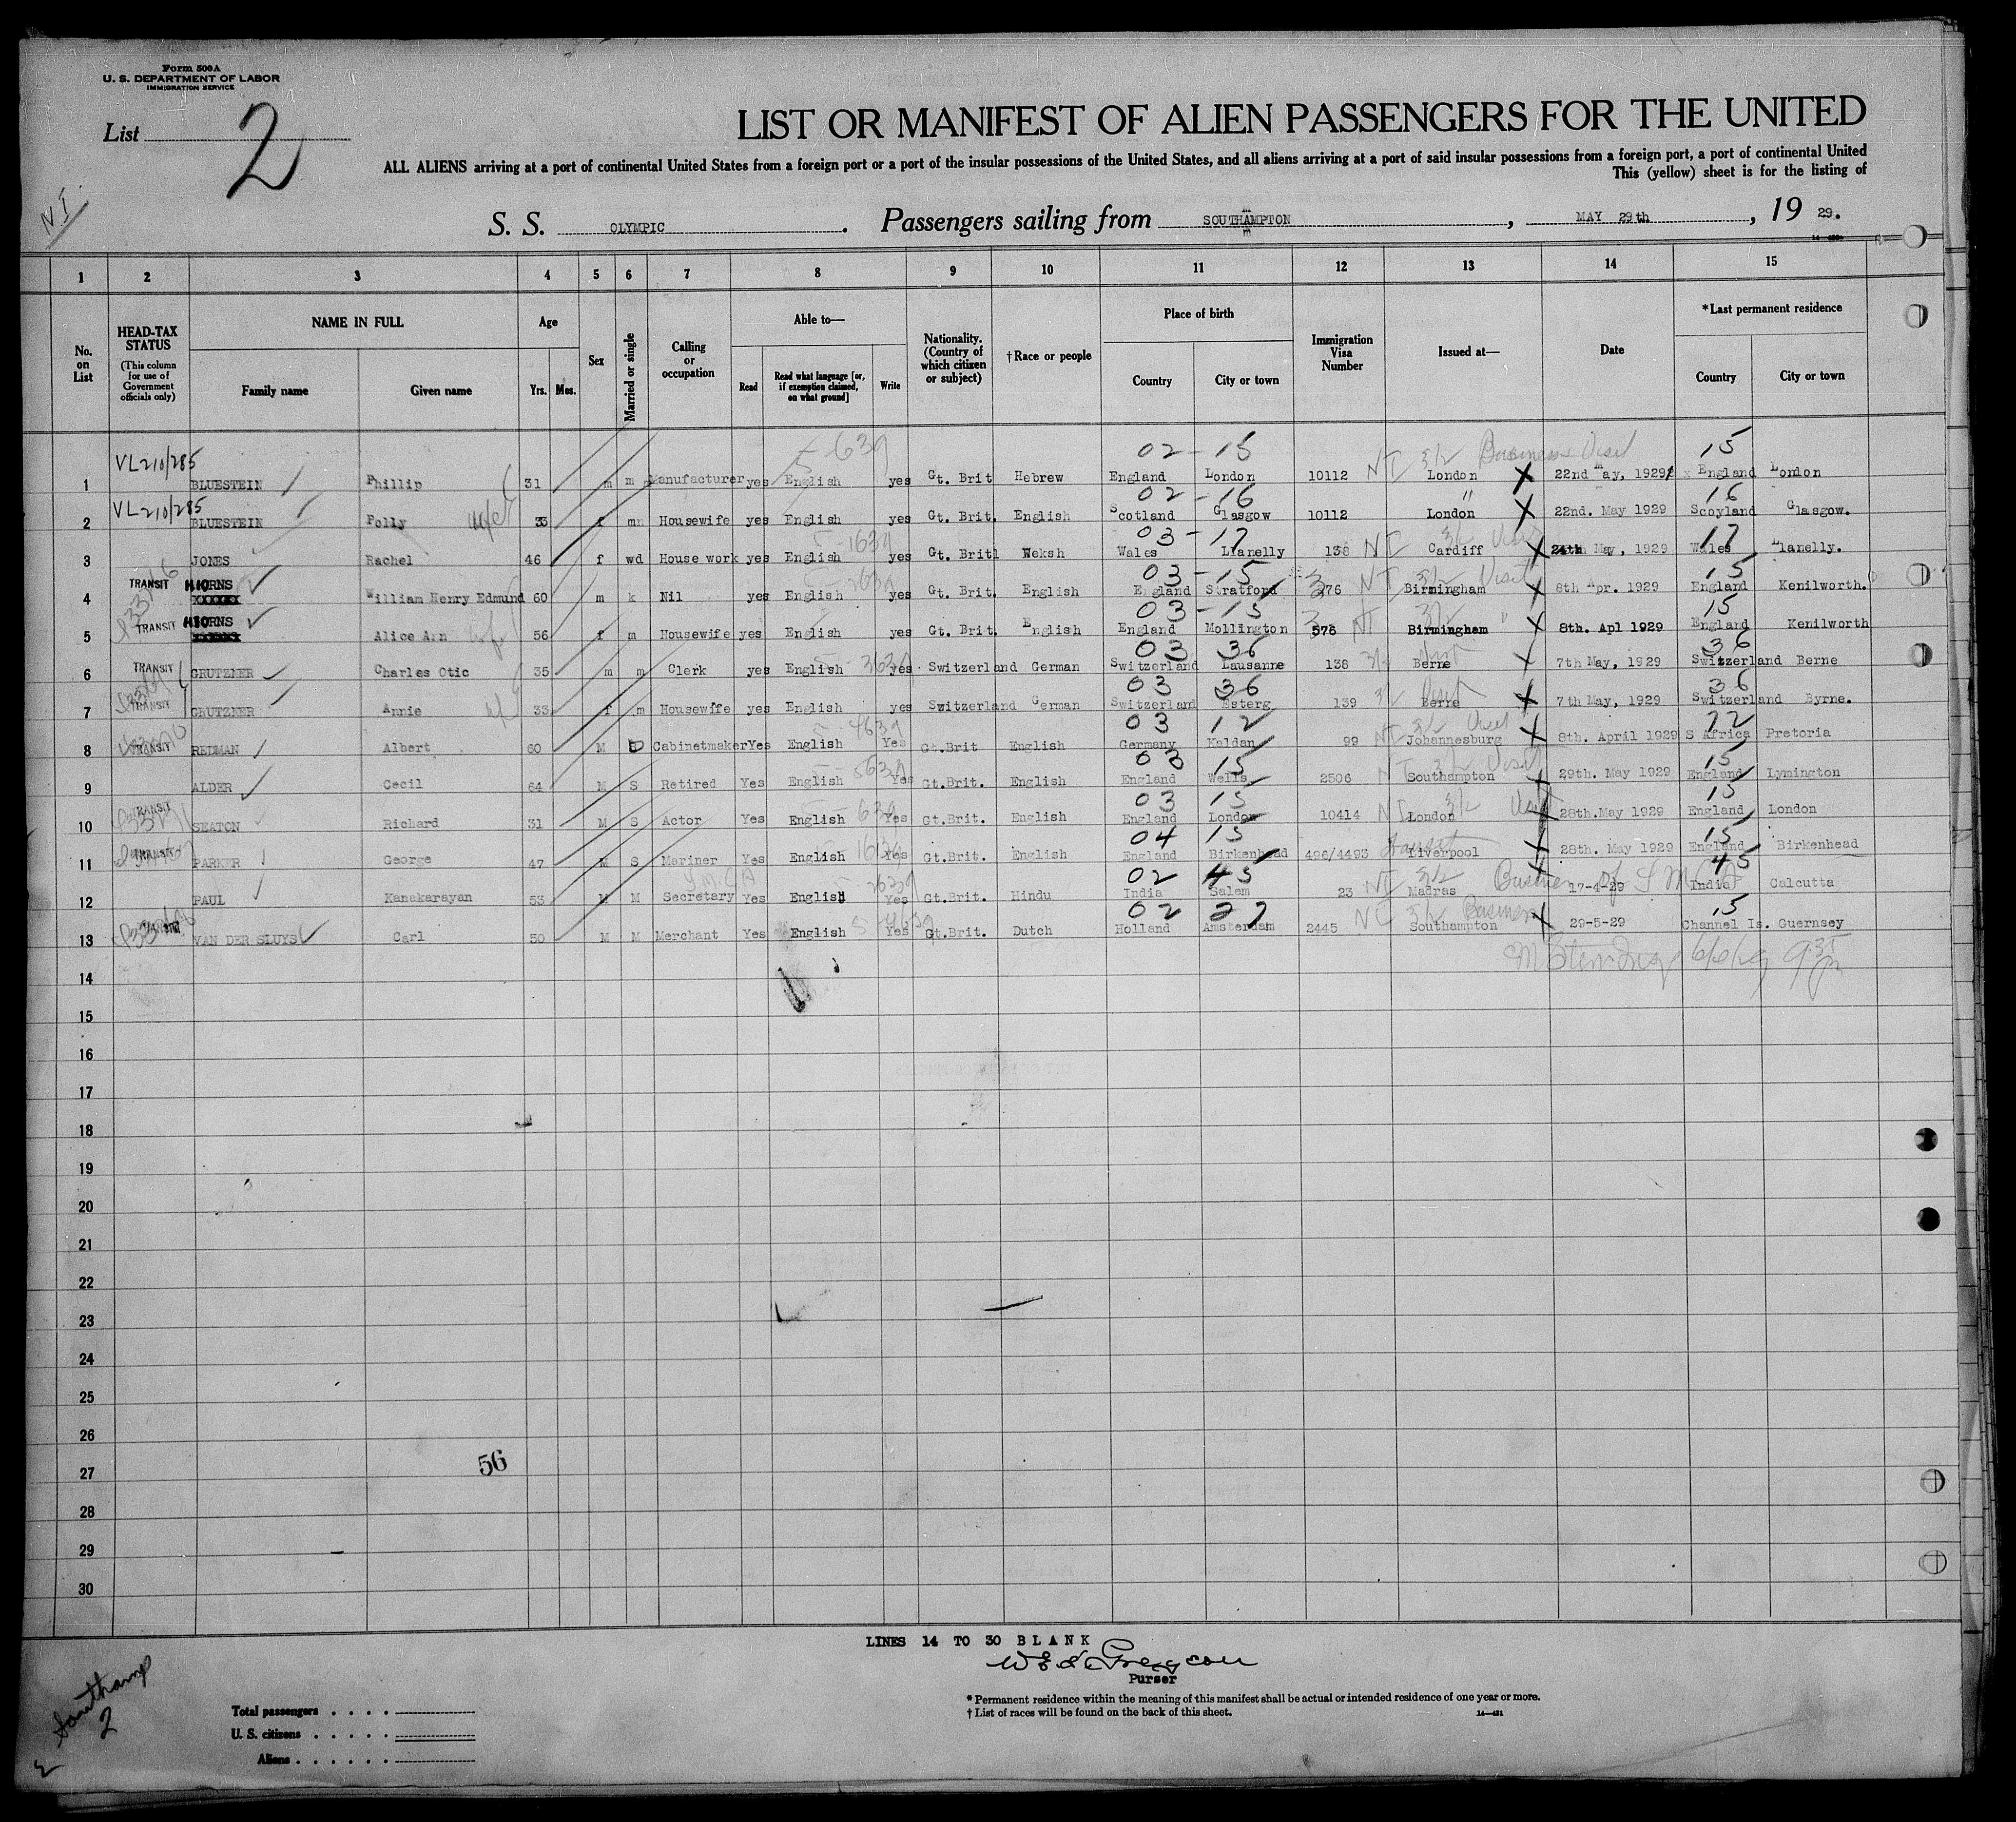 Form 500A
U. S. DEPARTMENT OF LABOR
IMMIGRATION SERVICE
List 2
LIST OR MANIFEST OF ALIEN PASSENGERS FOR THE UNITED
ALL ALIENS arriving at a port of continental United States from a foreign port or a port of the insular possessions of the United States, and all aliens arriving at a port of said insular possessions from a foreign port, a port of continental United
This (yellow) sheet is for the listing of
S. S. OLYMPIC . Passengers sailing from SOUTHAMPTON , MAY 29th , 19 29.
1 2 3 4 5 6 7 8 9 10 11 12 13 14 15
No. on List
HEAD-TAX STATUS (This column for use of Government officials only)
NAME IN FULL
Family name Given name
Age
Yrs. Mos.
Sex
Married or single
Calling or occupation
Able to—
Read Read what language [or, if exemption claimed, on what ground] Write
Nationality. (Country of which citizen or subject)
†Race or people
Place of birth
Country City or town
Immigration Visa Number
Issued at—
Date
*Last permanent residence
Country City or town
02 - 15 Business Visit 15
1 VL210/285 BLUESTEIN Phillip 31 m m Manufacturer yes English yes Gt. Brit Hebrew England London 10112 NI London X 22nd May, 1929 England London
02 - 16 " 16
2 VL210/285 BLUESTEIN Polly wife 33 f m Housewife yes English yes Gt. Brit. English Scotland Glasgow 10112 London X 22nd. May 1929 Scoyland Glasgow.
03 - 17 Visit 17
3 JONES Rachel 46 f wd House work yes English yes Gt. Brit Weksh Wales Llanelly 138 Cardiff X 24th May, 1929 Wales Llanelly.
03 - 15 Visit 15
4 TRANSIT HIORNS William Henry Edmund 60 m k Nil yes English yes Gt. Brit. English England Stratford 376 Birmingham X 8th Apr. 1929 England Kenilworth.
03 - 15 " 15
5 TRANSIT HIORNS Alice Ann wife 56 f m Housewife yes English yes Gt. Brit. English England Mollington 576 Birmingham X 8th. Apl 1929 England Kenilworth
03 36 Visit 36
6 TRANSIT GRUTZNER Charles Otic 35 m m Clerk yes English yes Switzerland German Switzerland Lausanne 138 Berne X 7th May, 1929 Switzerland Berne
03 36 Visit 36
7 TRANSIT GRUTZNER Annie 33 f m Housewife yes English yes Switzerland German Switzerland Esterg 139 Berne X 7th May, 1929 Switzerland Byrne.
03 12 Visit 72
8 TRANSIT REDMAN Albert 60 M Cabinetmaker Yes English Yes Gt.Brit English Germany Maldan 99 Johannesburg X 8th. April 1929 S Africa Pretoria
03 15 Visit 15
9 ALDER Cecil 64 M S Retired Yes English Yes Gt.Brit. English England Wells 2506 Southampton X 29th. May 1929 England Lymington
03 15 Visit 15
10 TRANSIT SEATON Richard 31 M S Actor Yes English Yes Gt.Brit. English England London 10414 London X 28th.May 1929 England London
04 15 Transit 15
11 TRANSIT PARKER George 47 M S Mariner Yes English Yes Gt.Brit. English England Birkenhead 496/4493 Liverpool X 28th. May 1929 England Birkenhead
Y.M.C.A 02 45 Business of 45
12 PAUL Kanakarayan 53 M M Secretary Yes English Yes Gt.Brit. Hindu India Salem 23 Madras X 17-4-29 India Calcutta
02 27 Business 15
13 VAN DER SLUYS Carl 50 M M Merchant Yes English Yes Gt.Brit. Dutch Holland Amsterdam 2445 Southampton X 29-5-29 Channel Is. Guernsey
14
15
16
17
18
19
20
21
22
23
24
25
26
56
27
28
29
30
LINES 14 TO 30 BLANK
Purser
Southamp
2
Total passengers
U. S. citizens
Aliens
* Permanent residence within the meaning of this manifest shall be actual or intended residence of one year or more.
† List of races will be found on the back of this sheet.